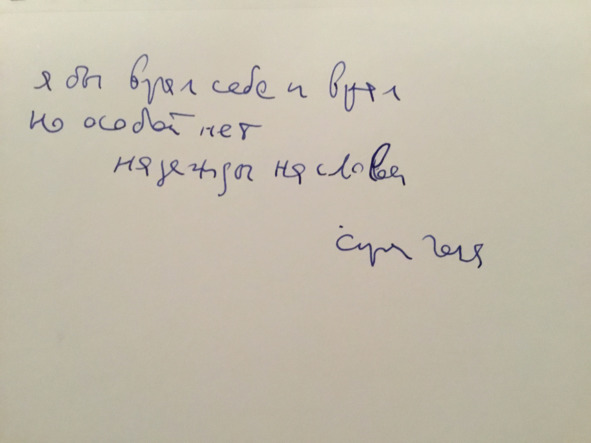 я бы врал себе и врал
но особой нет
надежды на слова